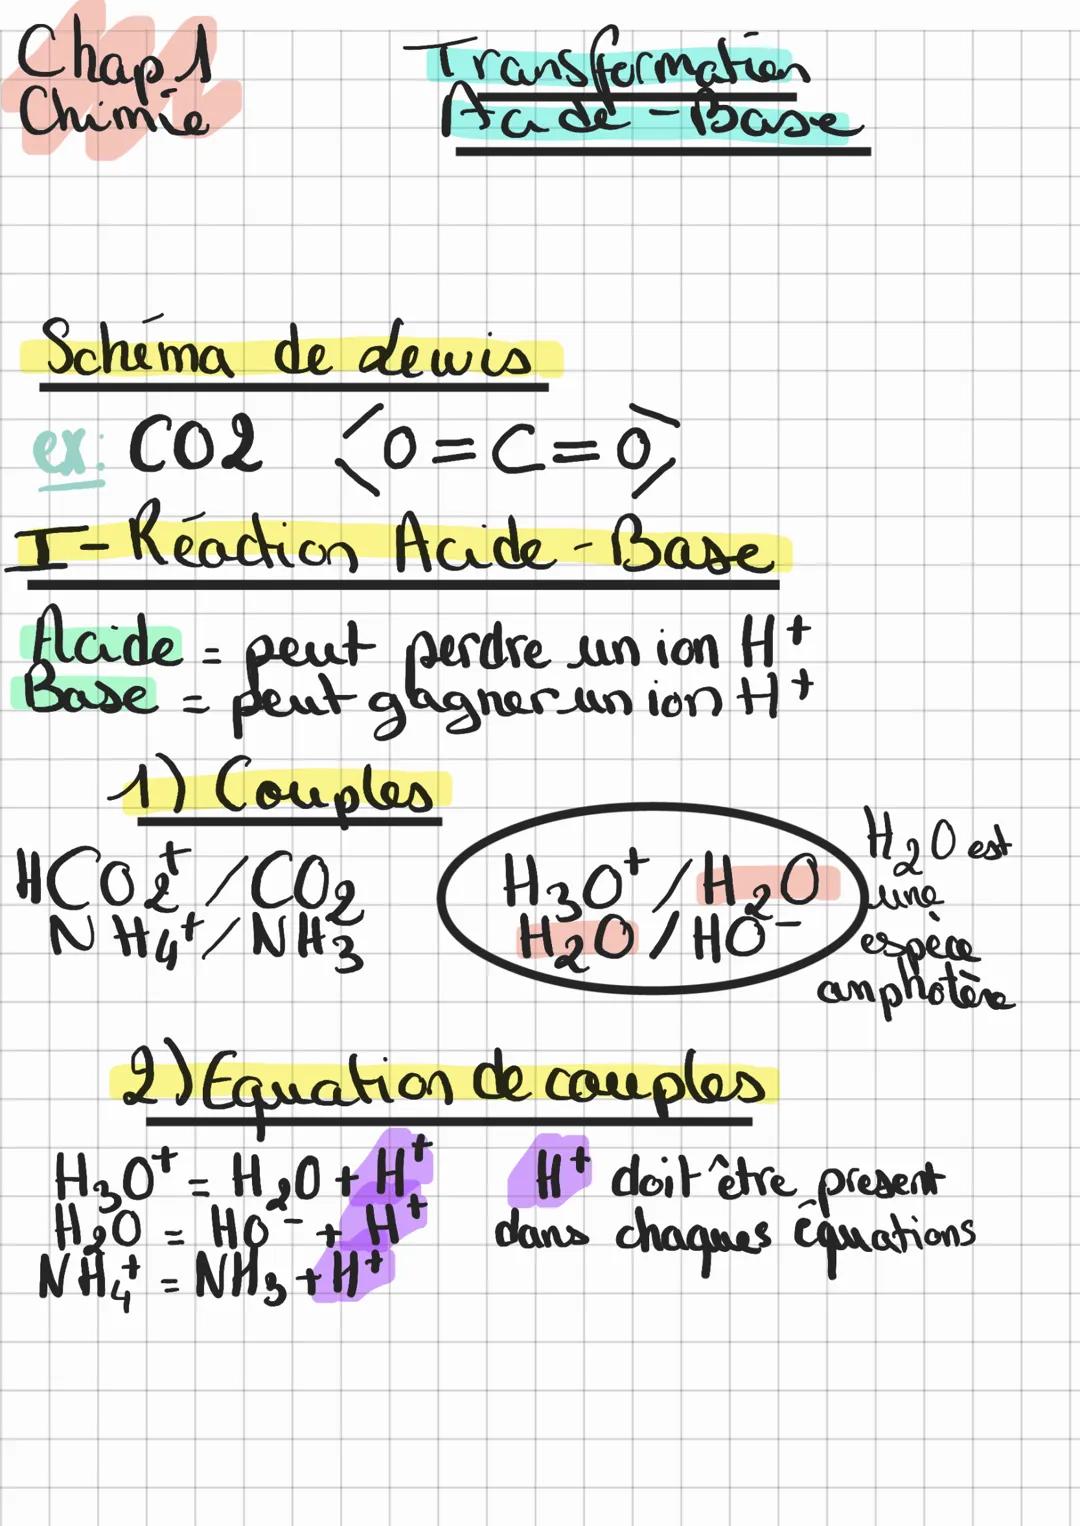 Chap 1
Chimie
Transformation
Acide-Base
Schéma de Lewis
ex: CO2 ⟨O=C=O⟩
I-Réaction Acide-Base
Acide = peut perdre un ion H⁺
Base = peut gagner un ion H⁺
1) Couples
HCO₂⁺/CO₂
NH₄⁺/NH₃
H₃O⁺/H₂O
H₂O/HO⁻
H₂O est
une
espèce
amphotère
2) Equation de couples
H₃O⁺ = H₂O + H⁺
H₂O = HO⁻ + H⁺
NH₄⁺ = NH₃ + H⁺
H⁺ doit être present
dans chaques équations